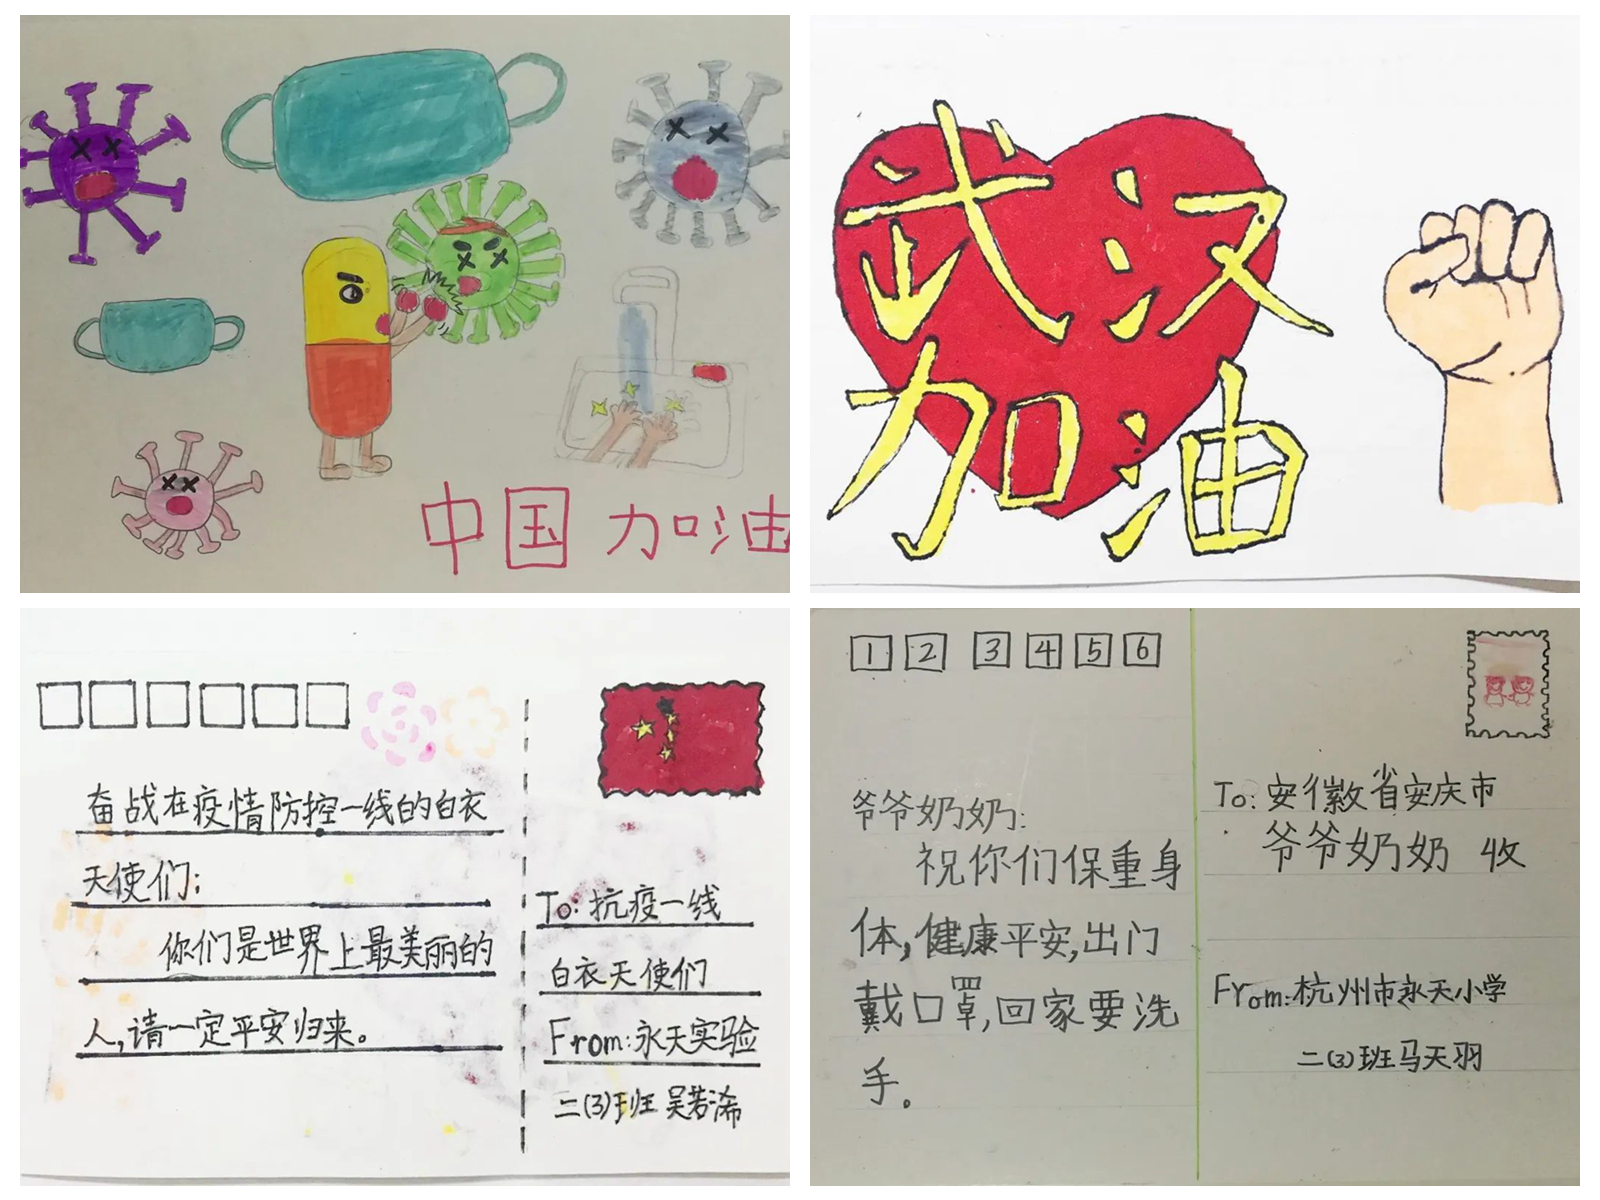 中国 加油
武汉
加油
奋战在疫情防控一线的白衣
天使们:
你们是世界上最美丽的
人,请一定平安归来。
To: 抗疫一线
白衣天使们
From:永天实验
二(3)班 吴若浠
1 2 3 4 5 6
爷爷奶奶:
祝你们保重身
体,健康平安,出门
戴口罩,回家要洗
手。
To: 安徽省安庆市
爷爷奶奶 收
From:杭州市永天小学
二(3)班马天羽